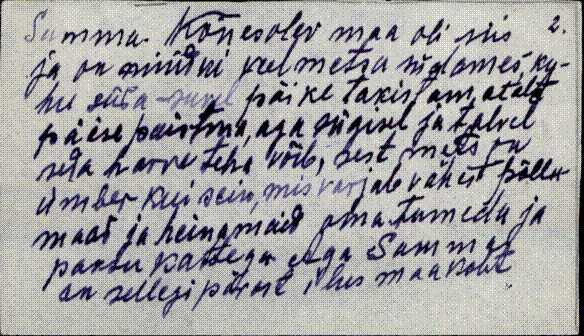 Samma. Kõnesolev maa oli siis 2.
ja on nüüdki veel metsa südames, ku-
hu süda suvel päike takistamatult
pääse paistma, aga sügisel ja talvel
seda harva teha võib, sest mets on
ümber kui sein, mis varjab vähest põllu-
maad ja heinamaid oma tumeda ja
paksu kattega. Aga Sammas
on sellegipärast ilus maakoht